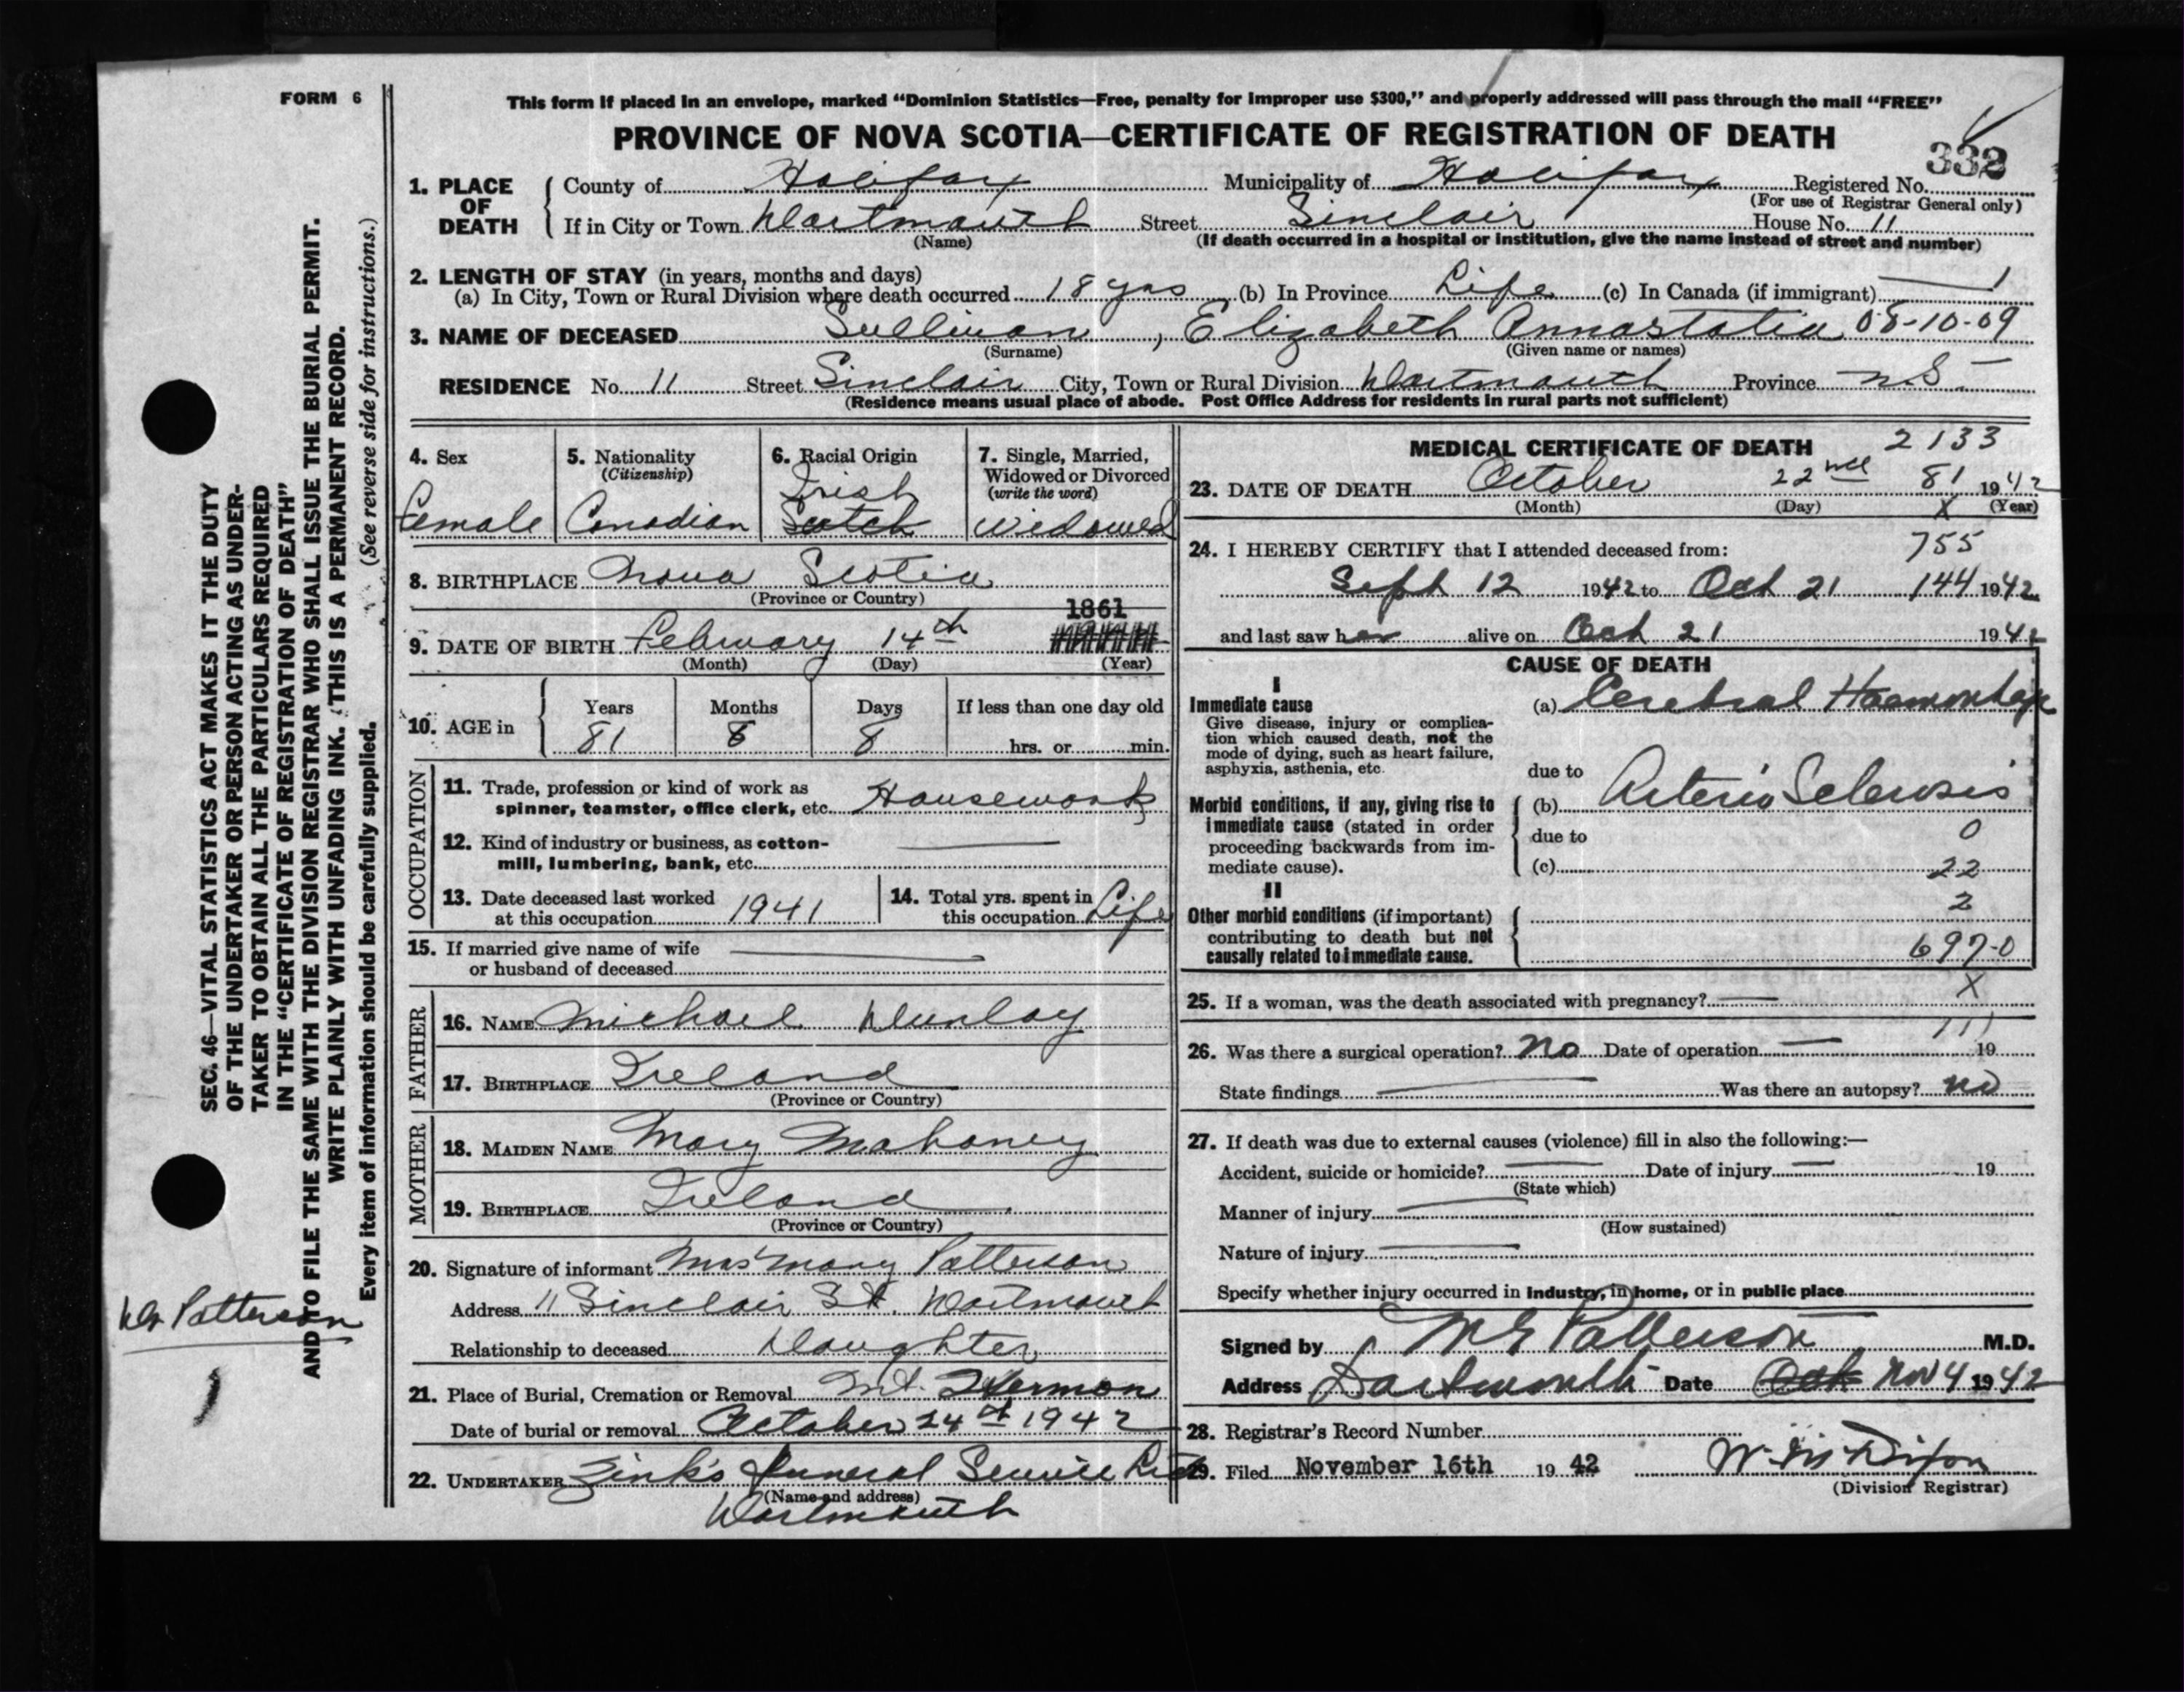 FORM 6
This form if placed in an envelope, marked “Dominion Statistics—Free, penalty for improper use $300,” and properly addressed will pass through the mail “FREE”
PROVINCE OF NOVA SCOTIA—CERTIFICATE OF REGISTRATION OF DEATH
332
1. PLACE OF DEATH County of Halifax Municipality of Halifax Registered No.
(For use of Registrar General only)
If in City or Town Dartmouth Street Sinclair House No. 11
(Name) (If death occurred in a hospital or institution, give the name instead of street and number)
2. LENGTH OF STAY (in years, months and days)
(a) In City, Town or Rural Division where death occurred 18 yrs (b) In Province Life (c) In Canada (if immigrant) — 1
3. NAME OF DECEASED Sullivan, Elizabeth Annastatia 08-10-09
(Surname) (Given name or names)
RESIDENCE No. 11 Street Sinclair City, Town or Rural Division Dartmouth Province N.S.
(Residence means usual place of abode. Post Office Address for residents in rural parts not sufficient)
4. Sex
Female
5. Nationality
(Citizenship)
Canadian
6. Racial Origin
Irish
Scotch
7. Single, Married,
Widowed or Divorced
(write the word)
Widowed
8. BIRTHPLACE Nova Scotia
(Province or Country)
1861
9. DATE OF BIRTH February 14th
(Month) (Day) (Year)
10. AGE in Years Months Days If less than one day old
81 8 8 hrs. or min.
OCCUPATION
11. Trade, profession or kind of work as
spinner, teamster, office clerk, etc. Housework
12. Kind of industry or business, as cotton-
mill, lumbering, bank, etc. —
13. Date deceased last worked
at this occupation 1941
14. Total yrs. spent in
this occupation Life
15. If married give name of wife
or husband of deceased —
FATHER
16. NAME Michael Dunlay
17. BIRTHPLACE Ireland
(Province or Country)
MOTHER
18. MAIDEN NAME Mary Mahoney
19. BIRTHPLACE Ireland
(Province or Country)
20. Signature of informant Mrs Mary Patterson
Address 11 Sinclair St. Dartmouth
Relationship to deceased Daughter
21. Place of Burial, Cremation or Removal Mt. Hermon
Date of burial or removal October 24th 1942
22. UNDERTAKER Zink's Funeral Service Ltd
(Name and address)
Dartmouth
MEDICAL CERTIFICATE OF DEATH 2133
23. DATE OF DEATH October 22nd 81 1942
(Month) (Day) X (Year)
24. I HEREBY CERTIFY that I attended deceased from: 755
Sept 12 1942 to Oct 21 144 1942
and last saw her alive on Oct 21 1942
CAUSE OF DEATH
I
Immediate cause (a) Cerebral Haemorrhage
Give disease, injury or complica-
tion which caused death, not the
mode of dying, such as heart failure,
asphyxia, asthenia, etc.
due to
Morbid conditions, if any, giving rise to (b) Arterio Sclerosis
immediate cause (stated in order
due to 0
proceeding backwards from im-
mediate cause). (c) 22
II
2
Other morbid conditions (if important)
contributing to death but not
causally related to immediate cause. 697-0
25. If a woman, was the death associated with pregnancy? — X
111
26. Was there a surgical operation? No Date of operation — 19
State findings — Was there an autopsy? no
27. If death was due to external causes (violence) fill in also the following:—
Accident, suicide or homicide? — Date of injury — 19
(State which)
Manner of injury —
(How sustained)
Nature of injury —
Specify whether injury occurred in industry, in home, or in public place
Signed by M G Patterson M.D.
Address Dartmouth Date Oct Nov 4 1942
28. Registrar's Record Number
29. Filed November 16th 1942
(Division Registrar)
SEC. 46—VITAL STATISTICS ACT MAKES IT THE DUTY
OF THE UNDERTAKER OR PERSON ACTING AS UNDER-
TAKER TO OBTAIN ALL THE PARTICULARS REQUIRED
IN THE “CERTIFICATE OF REGISTRATION OF DEATH”
AND TO FILE THE SAME WITH THE DIVISION REGISTRAR WHO SHALL ISSUE THE BURIAL PERMIT.
WRITE PLAINLY WITH UNFADING INK. THIS IS A PERMANENT RECORD.
Every item of information should be carefully supplied. (See reverse side for instructions.)
Dr Patterson
1